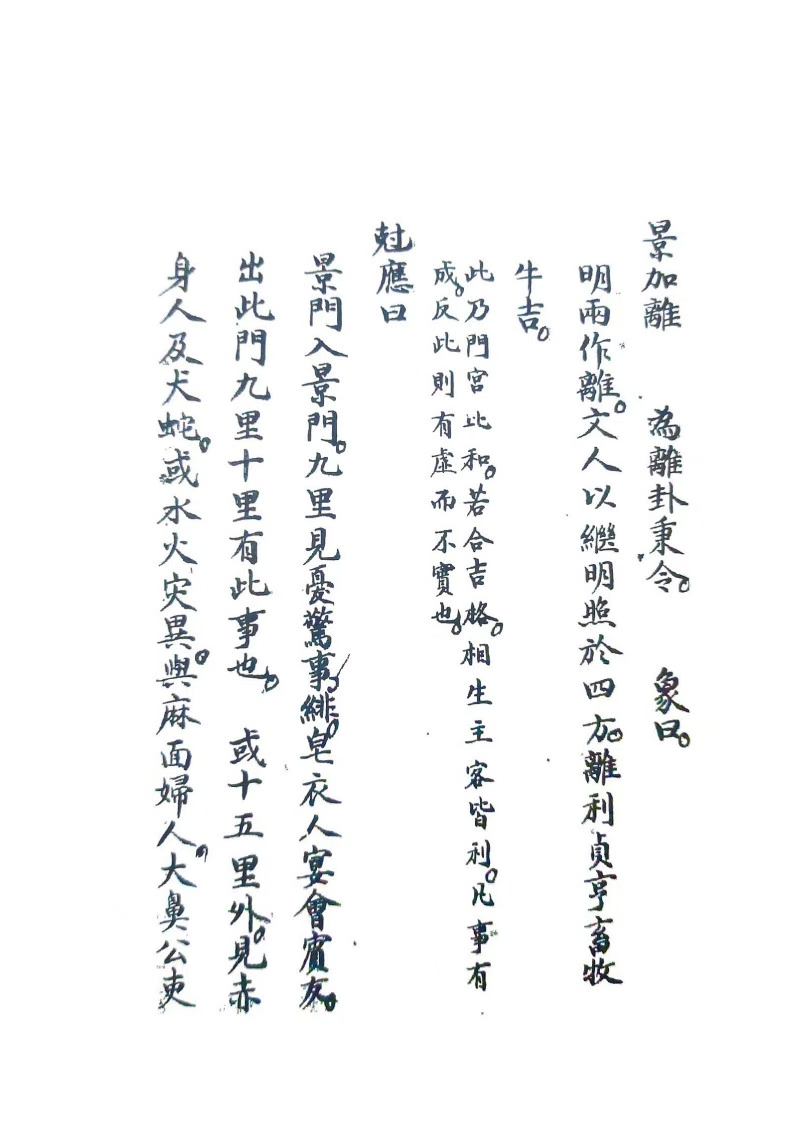 景加離　為離卦秉令。　象曰。
明兩作離。文人以繼明照於四方。離利貞亨畜牧
牛吉。
此乃門宮比和。若合吉格。相生主客皆利。凡事有
成。反此則有虛而不實也。
尅應曰
景門入景門。九里見憂驚事，緋。皂衣人宴會賓友。
出此門九里十里有此事也。　或十五里外。見赤
身人及犬蛇。或水火災異。與麻面婦人，大鼻公吏